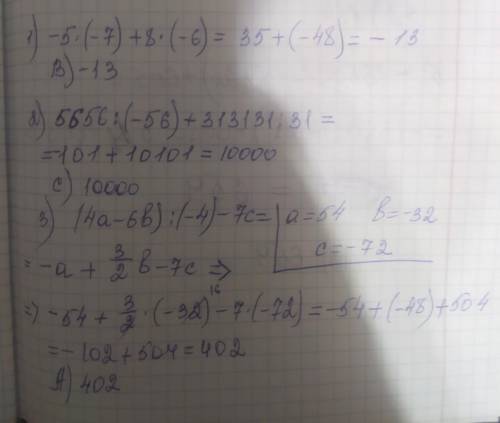 1) -5·(-7)+8·(-6)= 35+(-48)= -13
B) -13
2) 5656:(-56)+313131:31=
=-101+10101=10000
C) 10000
3) (4a-6b):(-4)-7c= a=54 b=-32
c=-72
= -a + 3/2 b-7c ⇒
⇒ -54 + 3/2·(-32)-7·(-72)=-54+(-48)+504
16
=-102+504=402
A) 402